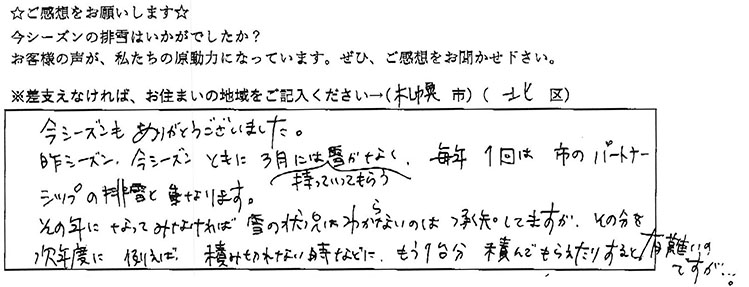 ☆ご感想をお願いします☆
今シーズンの排雪はいかがでしたか?
お客様の声が、私たちの原動力になっています。ぜひ、ご感想をお聞かせ下さい。
※差支えなければ、お住まいの地域をご記入ください→(札幌 市)( 北 区)
今シーズンも ありがとうございました。
昨シーズン、今シーズン ともに 3月には雪がなく、毎年 1回は 市の パートナー
持っていってもらう
シップの排雪と重なります。
その年に なってみなければ 雪の状況はわからないのは 承知してますが、その分を
次年度に 例えば 積みきれない時などに、もう1台分 積んで もらえたりすると有難いの
ですが…。